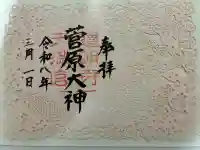 奉拝
菅原大神
令和八年
三月一日